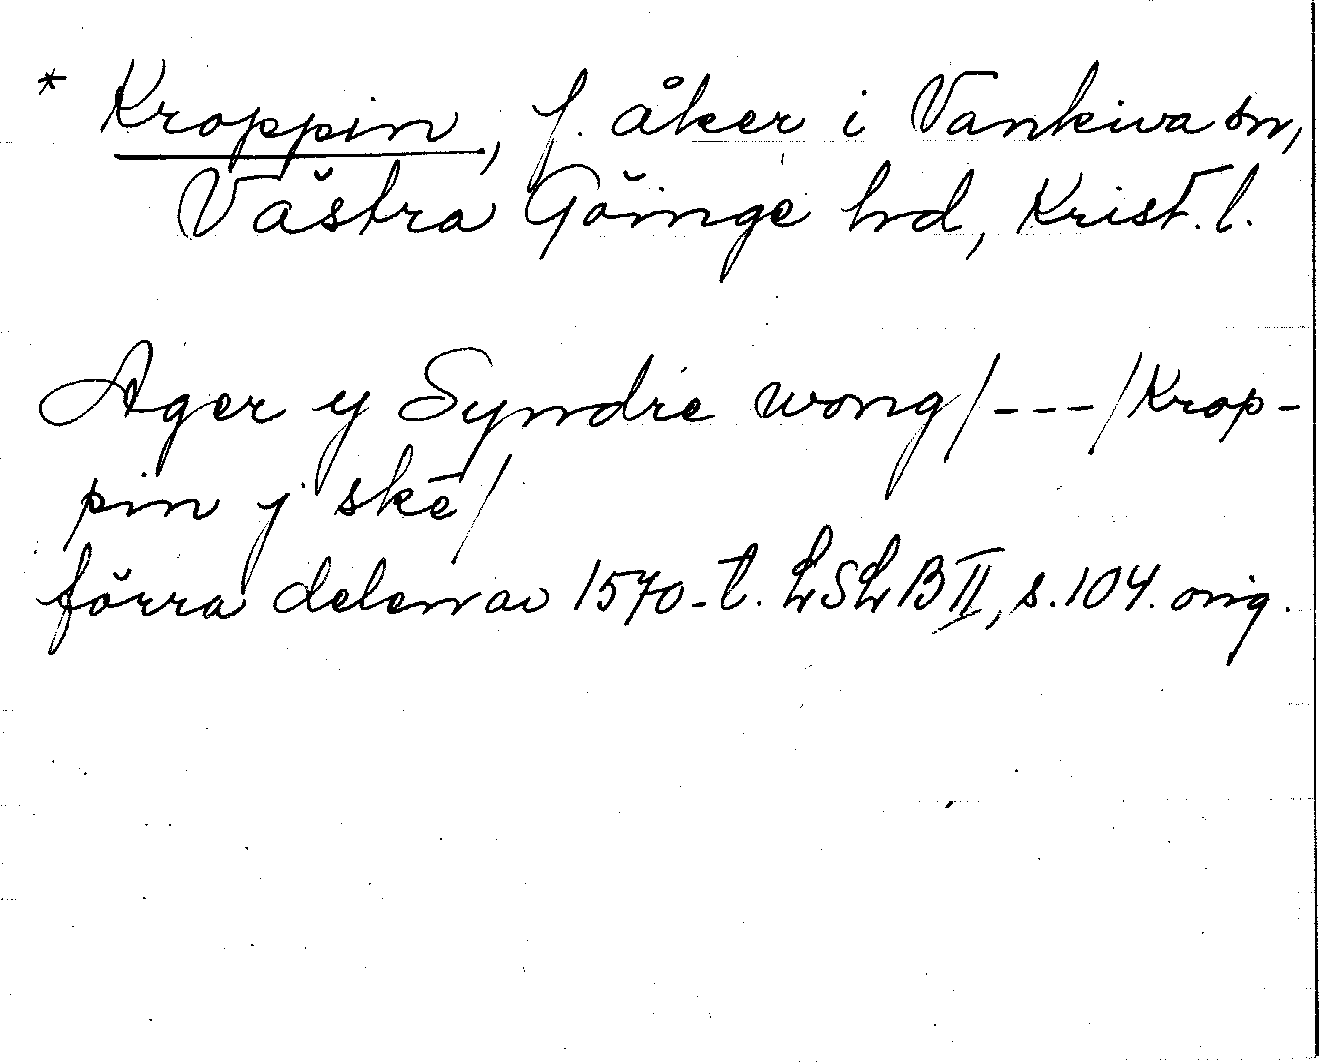 * Kroppin, f. åker i Vankiva sn,
Västra Göinge hd, Krist. l.
Ager y Syndre wong/---/Krop-
pin j skē/
förra delen av 1570-t. LSLB II, s. 104. orig.